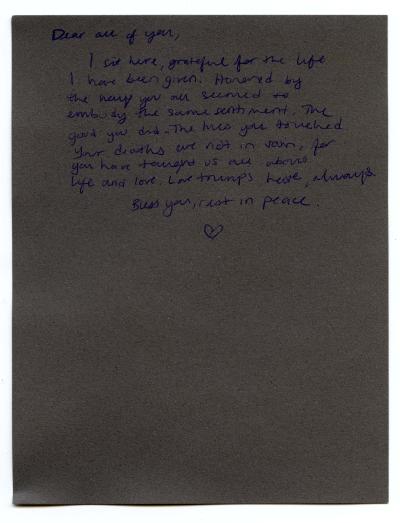 Dear all of you,
I sit here, grateful for the life
I have been given. Honored by
the way you all seemed to
embody the same sentiment. The
good you did. The lives you touched
Your deaths are not in vain, for
you have taught us all about
life and love. Love trumps hate, always.
Bless you, rest in peace.